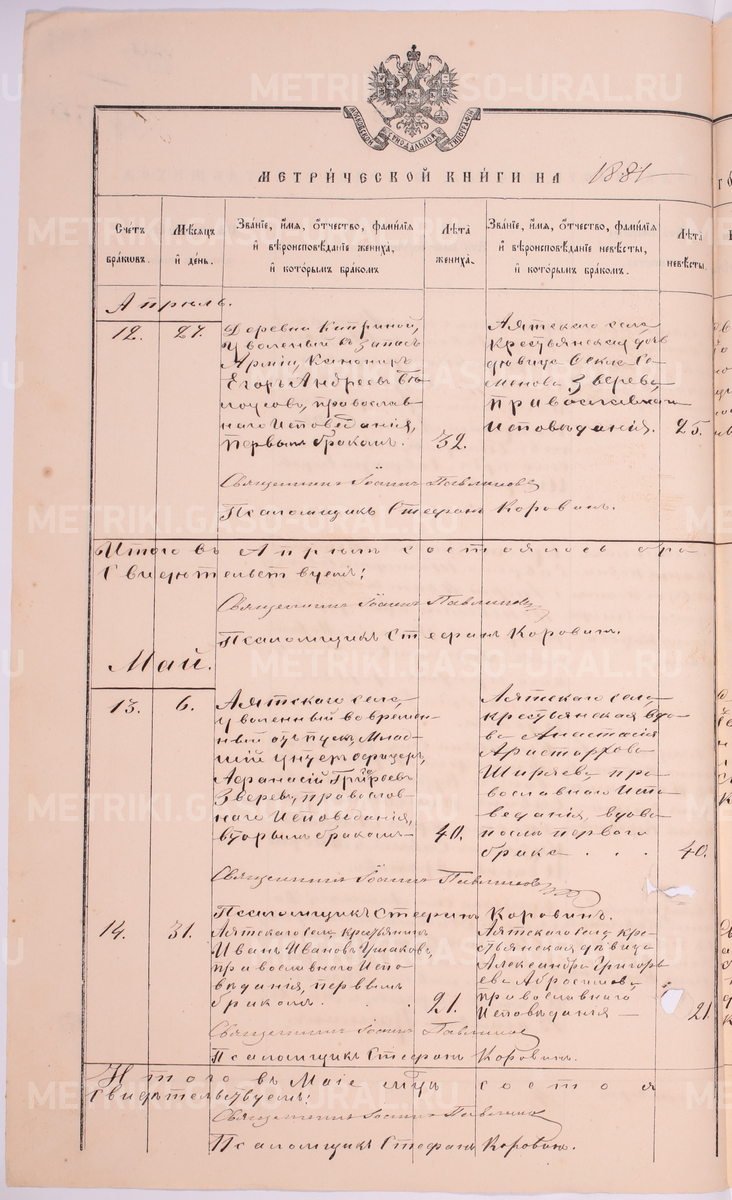 МОСКОВСКОЙ СѴНОДАЛЬНОЙ ТИПОГРАФІИ
МЕТРИ́ЧЕСКОЙ КНИ́ГИ НА 1881
Сче́тъ бра́ковъ.
Мѣ́сяцъ и҆ де́нь.
Зва́нїе, и҆́мя, ѻ҆́тчество, фами́лїя
и҆ вѣроисповѣ́данїе жениха̀,
и҆ кото́рымъ бра́комъ
Лѣ́та жениха̀.
Зва́нїе, и҆́мя, ѻ҆́тчество, фами́лїя
и҆ вѣроисповѣ́данїе невѣ́сты,
и҆ кото́рымъ бра́комъ.
Лѣ́та невѣ́сты.
Апрѣль.
12.
27.
Деревни
уволенный въ запасъ
Арміи, Канониръ
Егоръ Андреевъ Бѣ-
лоусовъ, православ-
наго Исповѣданія,
первымъ бракомъ.
32.
Аятскаго села,
крестьянская дочь
дѣвица Ѳекла Се-
менова Зверева,
православнаго
Исповѣданія.
25.
Священникъ Іоаннъ Павлиновъ
Псаломщикъ Стефанъ Коровинъ.
Итого въ Апрѣлѣ состоялось бра
Свидѣтельствуемъ:
Священникъ Іоаннъ Павлиновъ
Псаломщикъ Стефанъ Коровинъ.
Май.
13.
6.
Аятскаго села,
уволенный во времен-
ный отпускъ, Млад-
шій унтеръ офицеръ,
Афанасій
Зверевъ, православ-
наго Исповѣданія,
вторымъ бракомъ
40.
Аятскаго села,
крестьянская вдо-
ва Анастасія
Аристархова
Ширяева, пра-
вославнаго Испо-
ведания, вдова
послѣ перваго
брака . . .
40.
Священникъ Іоаннъ Павлиновъ
Псаломщикъ Стефанъ Коровинъ.
14.
31.
Аятскаго села, крестьянинъ
Иванъ Ивановъ Ушаковъ,
православнаго Испо-
вѣданія, первымъ
бракомъ.
21.
Аятскаго села, кре-
стьянская дѣвица
Александра Григорь-
ева Абросимова,
православнаго
Исповѣданія
21
Священникъ Іоаннъ Павлиновъ
Псаломщикъ Стефанъ Коровинъ.
Итого въ Маіе мцѣ состоя
Свидѣтельствуемъ:
Священникъ Іоаннъ Павлиновъ
Псаломщикъ Стефанъ Коровинъ.
METRIKI.GASO-URAL.RU